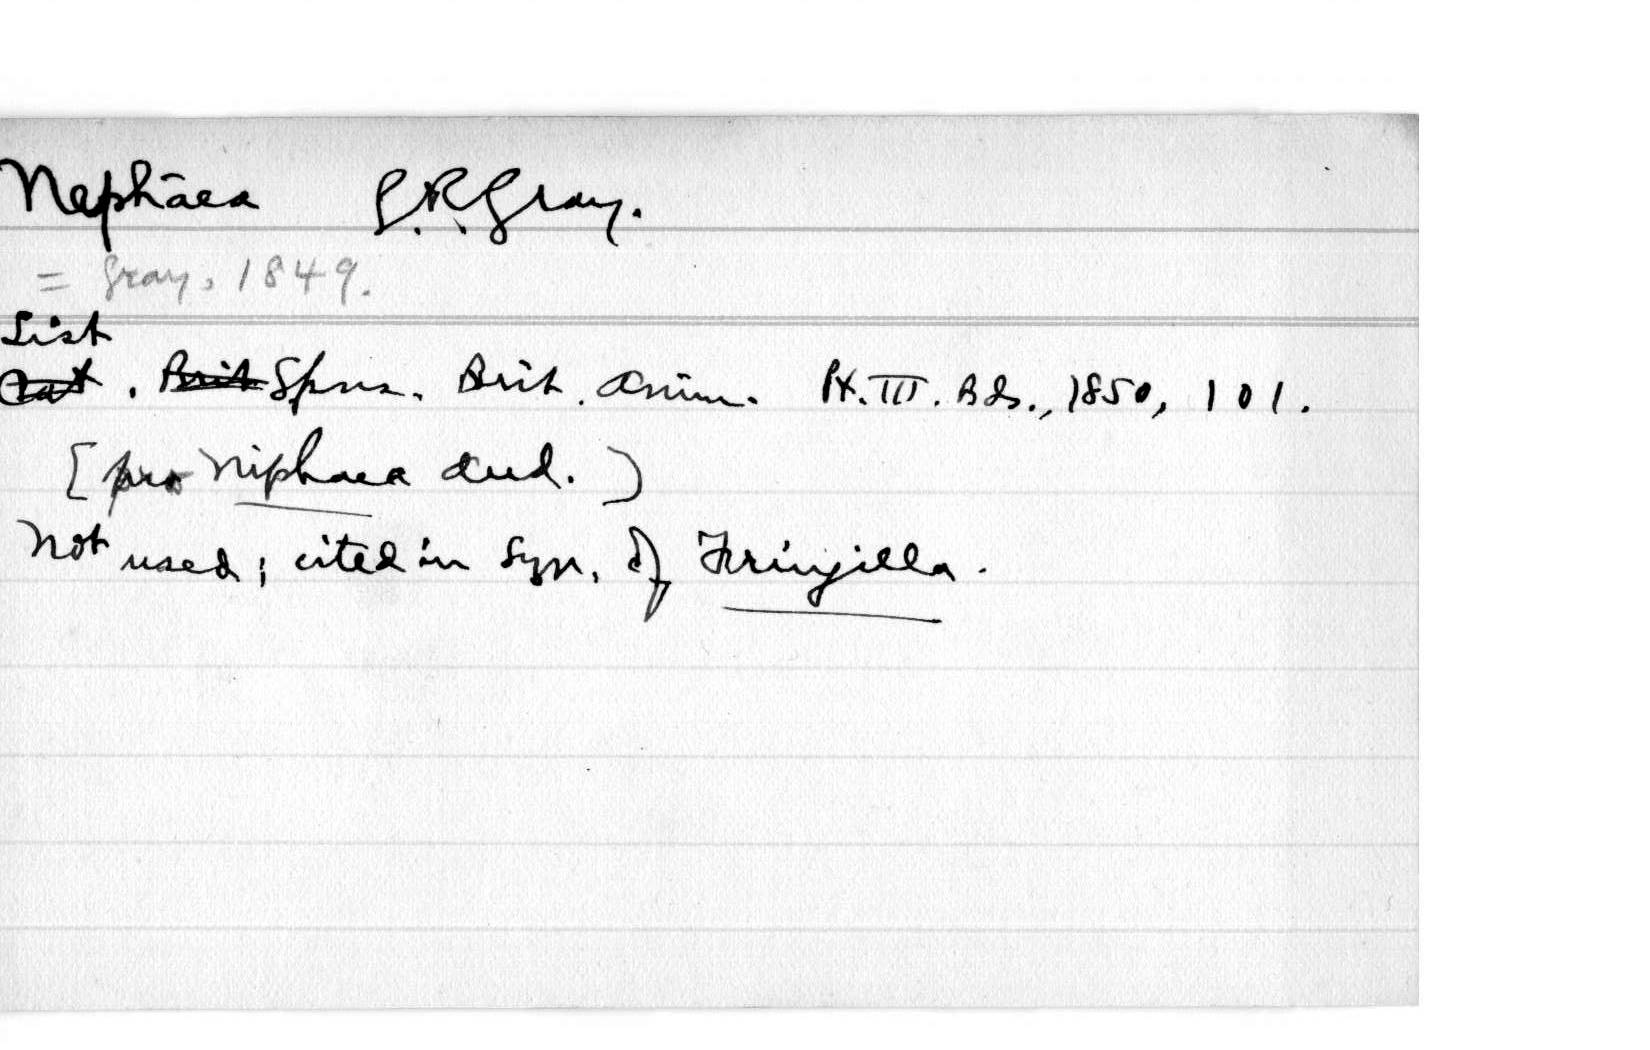 Nephāea G.R.Gray.
= Gray, 1849.
List
Cat. Brit Spns. Brit. Anim. Pt. III. Bds., 1850, 101.
[pro Niphaea Aud.)
Not used; cited in Syn. of Fringilla.